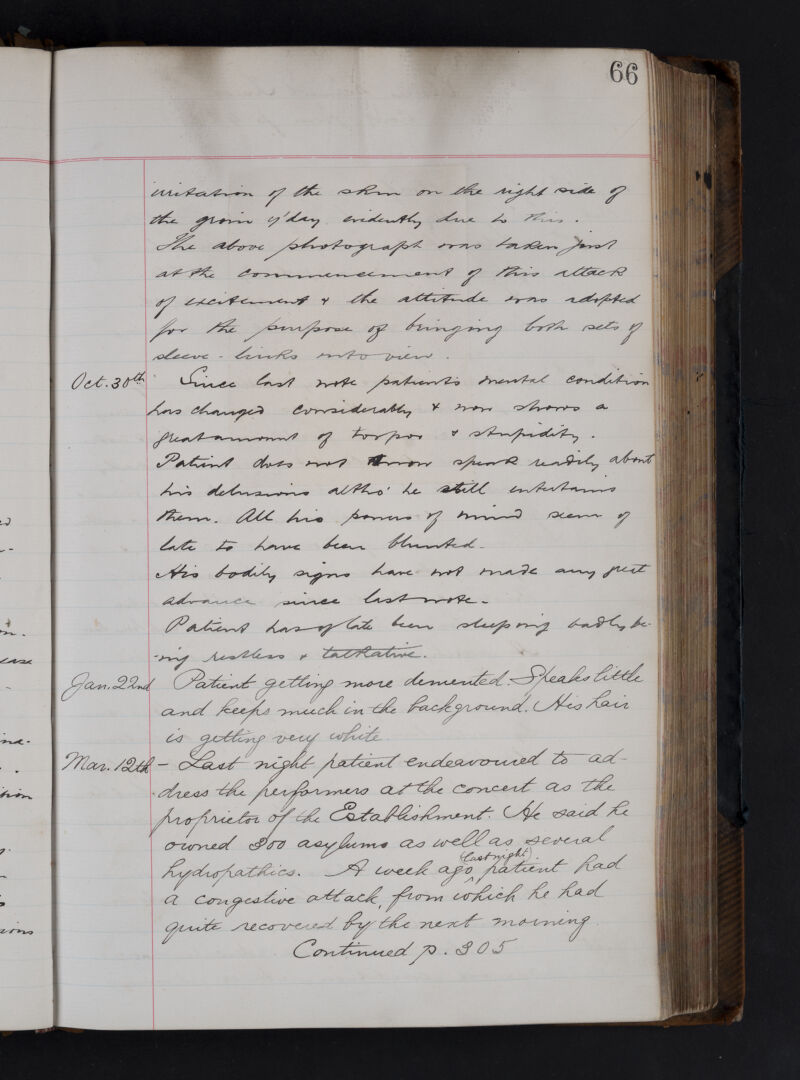 66
irritation of the skin on the right side of
the groin y'day evidently due to this.
The above photograph was taken just
at the commencement of this attack
of excitement & the attitude was adopted
for the purpose of bringing both sets of
sleeve-links into view.
Oct. 30th Since last note patient's mental condition
has changed considerably & now shows a
great amount of torpor & stupidity.
Patient does not speak readily about
his delusions altho' he still entertains
them. All his powers of mind seem of
late to have been blunted.
His bodily signs have not made any great
advance since last note.
Patient has of late been sleeping badly be-
-ing restless & talkative.
Jan. 22nd Patient getting more demented. Speaks little
and keeps much in the background. His hair
is getting very white.
Mar. 12th - Last night patient endeavoured to ad-
dress the performers at the concert as the
proprietor of the Establishment. He said he
owned 300 asylums as well as several
hydropathics. A week ago (last night) patient had
a congestive attack, from which he had
quite recovered by the next morning.
Continued p. 305